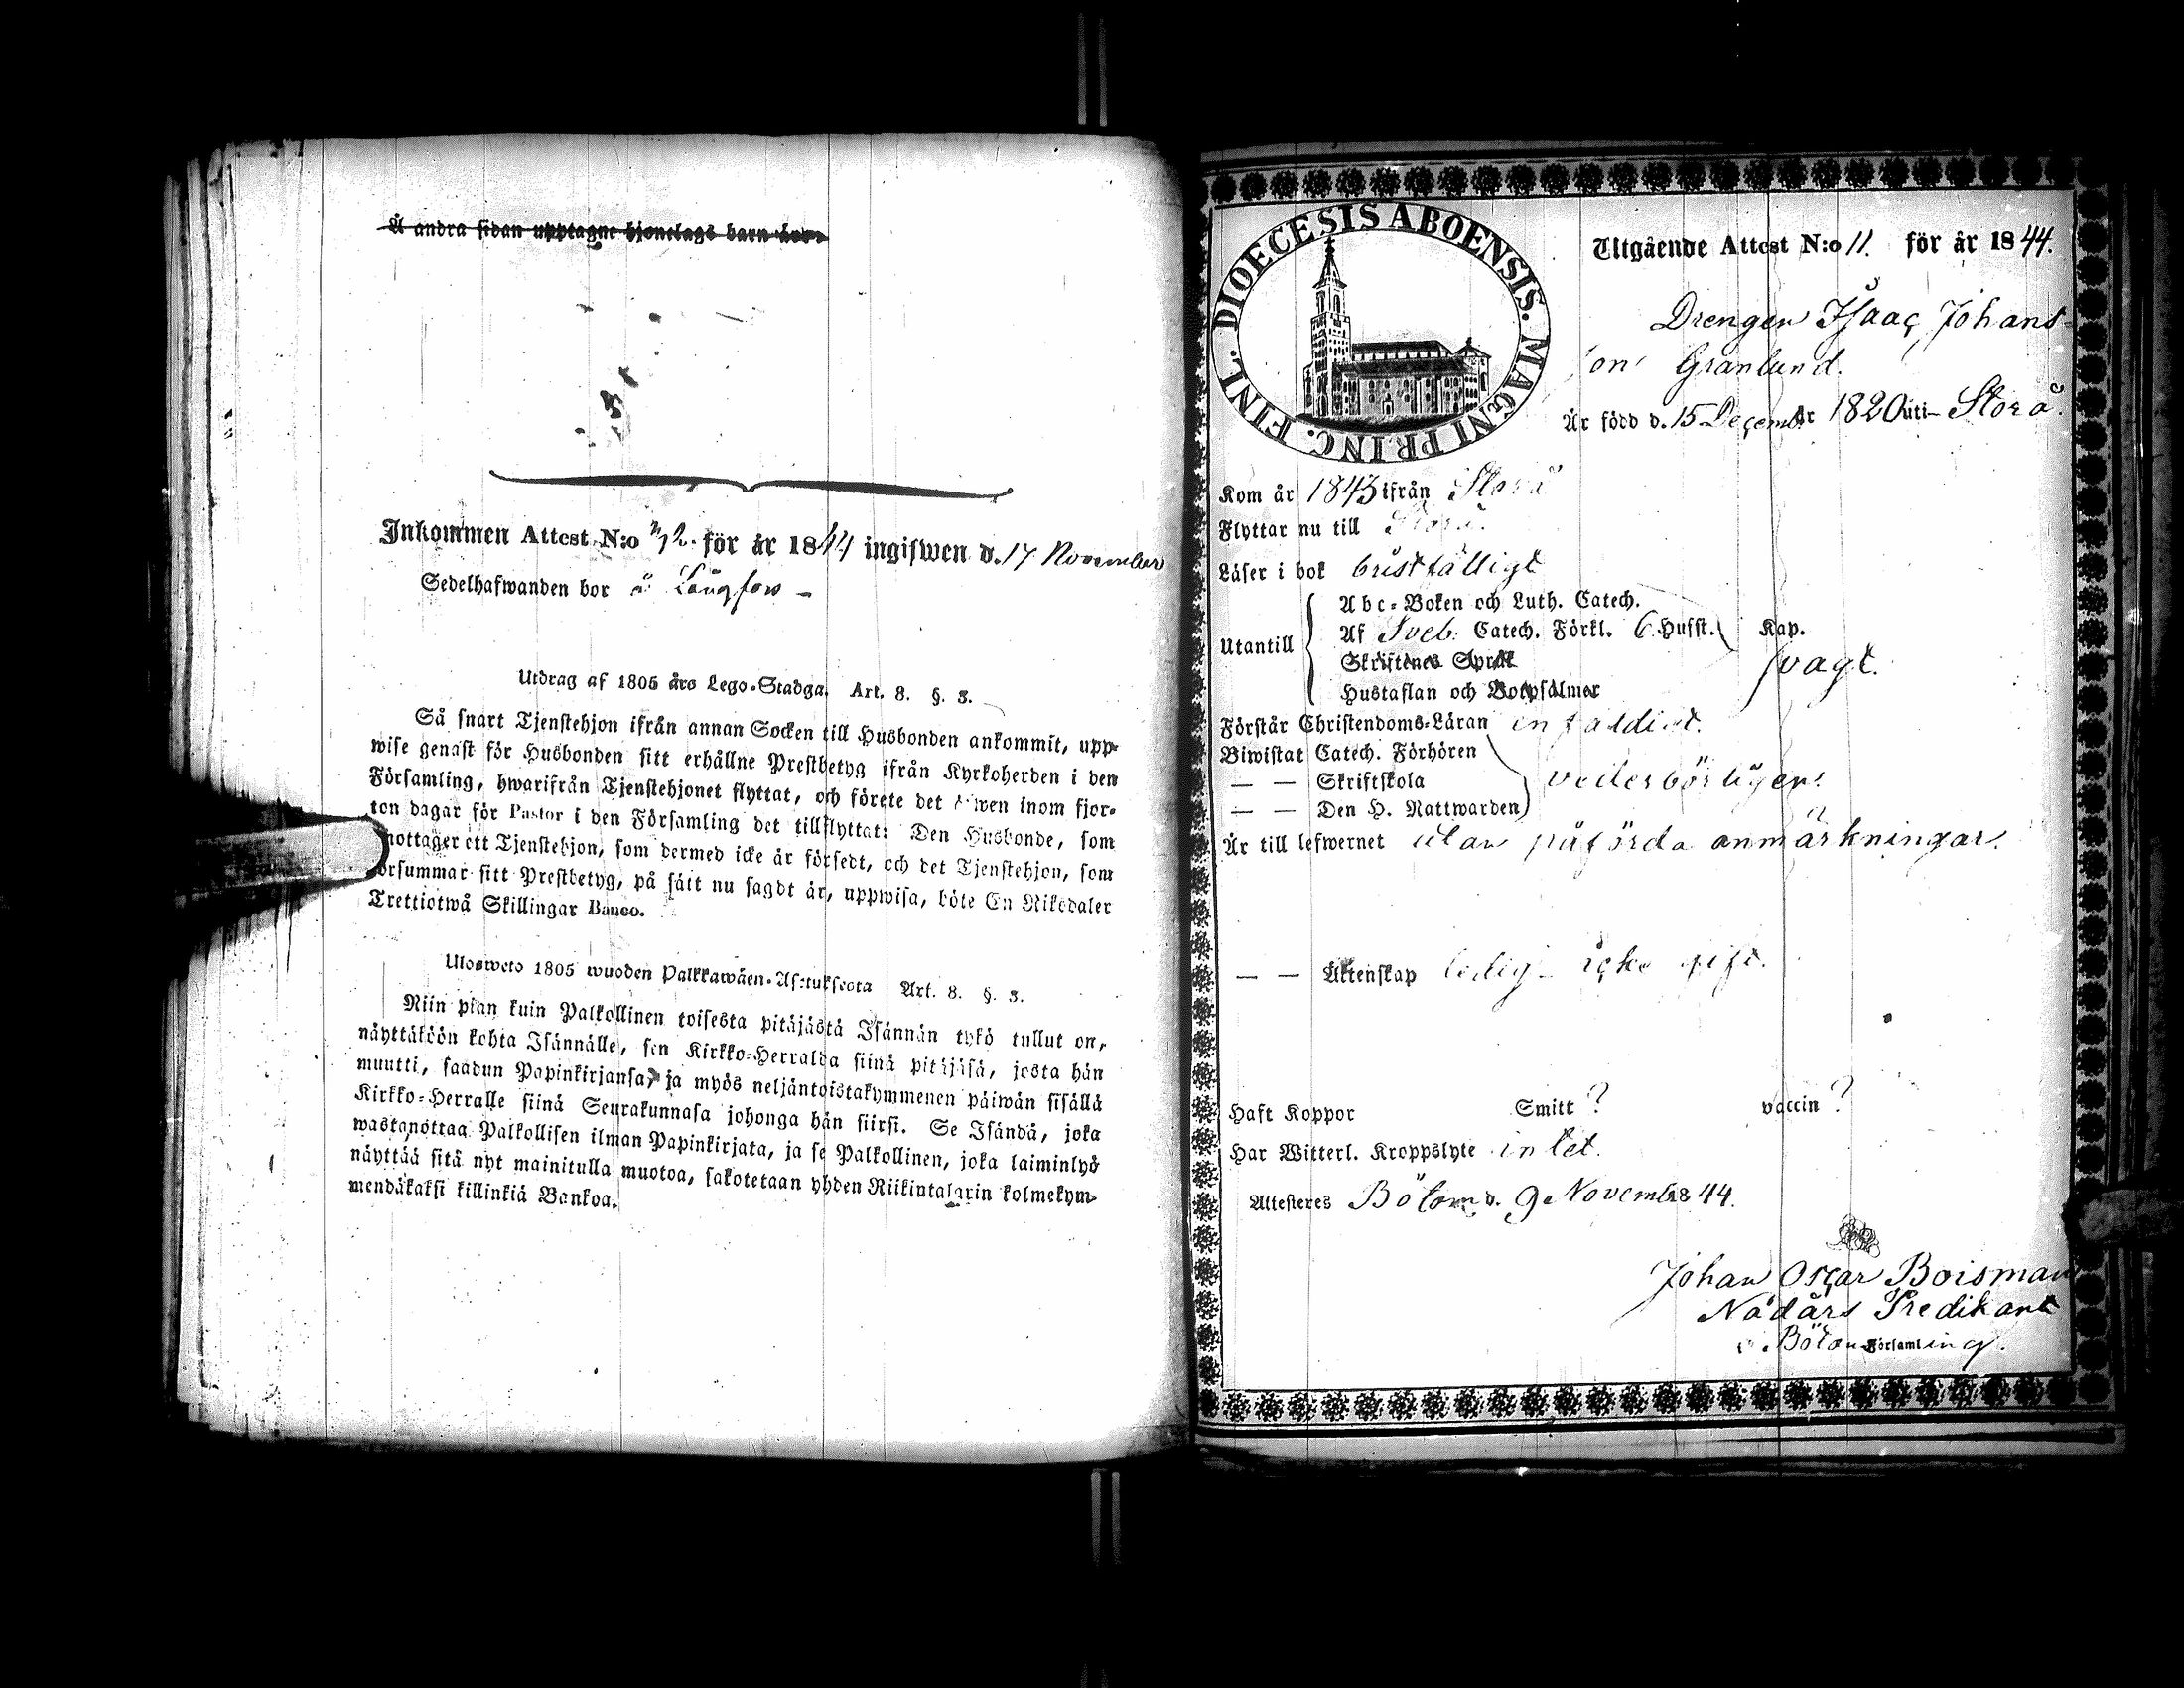 Å andra sidan upptagne hjonelags barn äro:
Inkommen Attest N:o 72. för år 1844 ingifwen d. 17 November
Sedelhafwanden bor å Långfors –
Utdrag af 1805 års Lego-Stadga. Art. 8. §. 3.
Så snart Tjenstehjon ifrån annan Socken till Husbonden ankommit, upp-
wise genast för Husbonden sitt erhållne Prestbetyg ifrån Kyrkoherden i den
Församling, hwarifrån Tjenstehjonet flyttat, och förete det äfwen inom fjor-
ton dagar för Pastor i den Församling det tillflyttat: Den Husbonde, som
mottager ett Tjenstehjon, som dermed icke är försedt, och det Tjenstehjon, som
försummar sitt Prestbetyg, på sätt nu sagdt är, uppwisa, böte En Riksdaler
Trettiotwå Skillingar Banco.
Ulosweto 1805 wuoden Palkkawäen-Asetuksesta Art. 8. §. 3.
Niin pian kuin Palkollinen toisesta pitäjästä Isännän tykö tullut on,
näyttäköön kohta Isännälle, sen Kirkko-Herralda siinä pitäjäsä, josta hän
muutti, saadun Papinkirjansa, ja myös neljäntoistakymmenen päiwän sisällä
Kirkko-Herralle siinä Seurakunnasa johonga hän siirsi. Se Isändä, joka
wastanottaa Palkollisen ilman Papinkirjata, ja se Palkollinen, joka laiminlyö
näyttää sitä nyt mainitulla muotoa, sakotetaan yhden Riikintalarin kolmekym-
mendäkaksi killinkiä Bankoa.
DIOECESIS ABOENSIS. MAGNI PRINC. FINL.
Utgående Attest N:o 11. för år 1844.
Drengen Isaac Johans-
son Granlund.
Är född d. 15 Decemb. år 1820 uti Storå.
Kom år 1843 ifrån Storå
Flyttar nu till Storå.
Läser i bok bristfälligt
Utantill
Abc-Boken och Luth. Catech.
Af Sveb. Catech. Förkl. 6 Hufst. Kap.
Skriftenes Språk
svagt.
Hustaflan och Botpsalmer
Förstår Christendoms-Läran enfaldigt.
Biwistat Catech. Förhören
— — Skriftskola vederbörligen.
— — Den H. Nattwarden
Är till lefwernet utan påförda anmärkningar.
— — Äktenskap ledig icke gift.
Haft Koppor Smitt ? vaccin ?
Har Witterl. Kroppslyte intet.
Attesteres Bötom d. 9 Novemb. 1844.
Johan Oscar Boisman
Nådårs Predikant
i Bötom Församling.